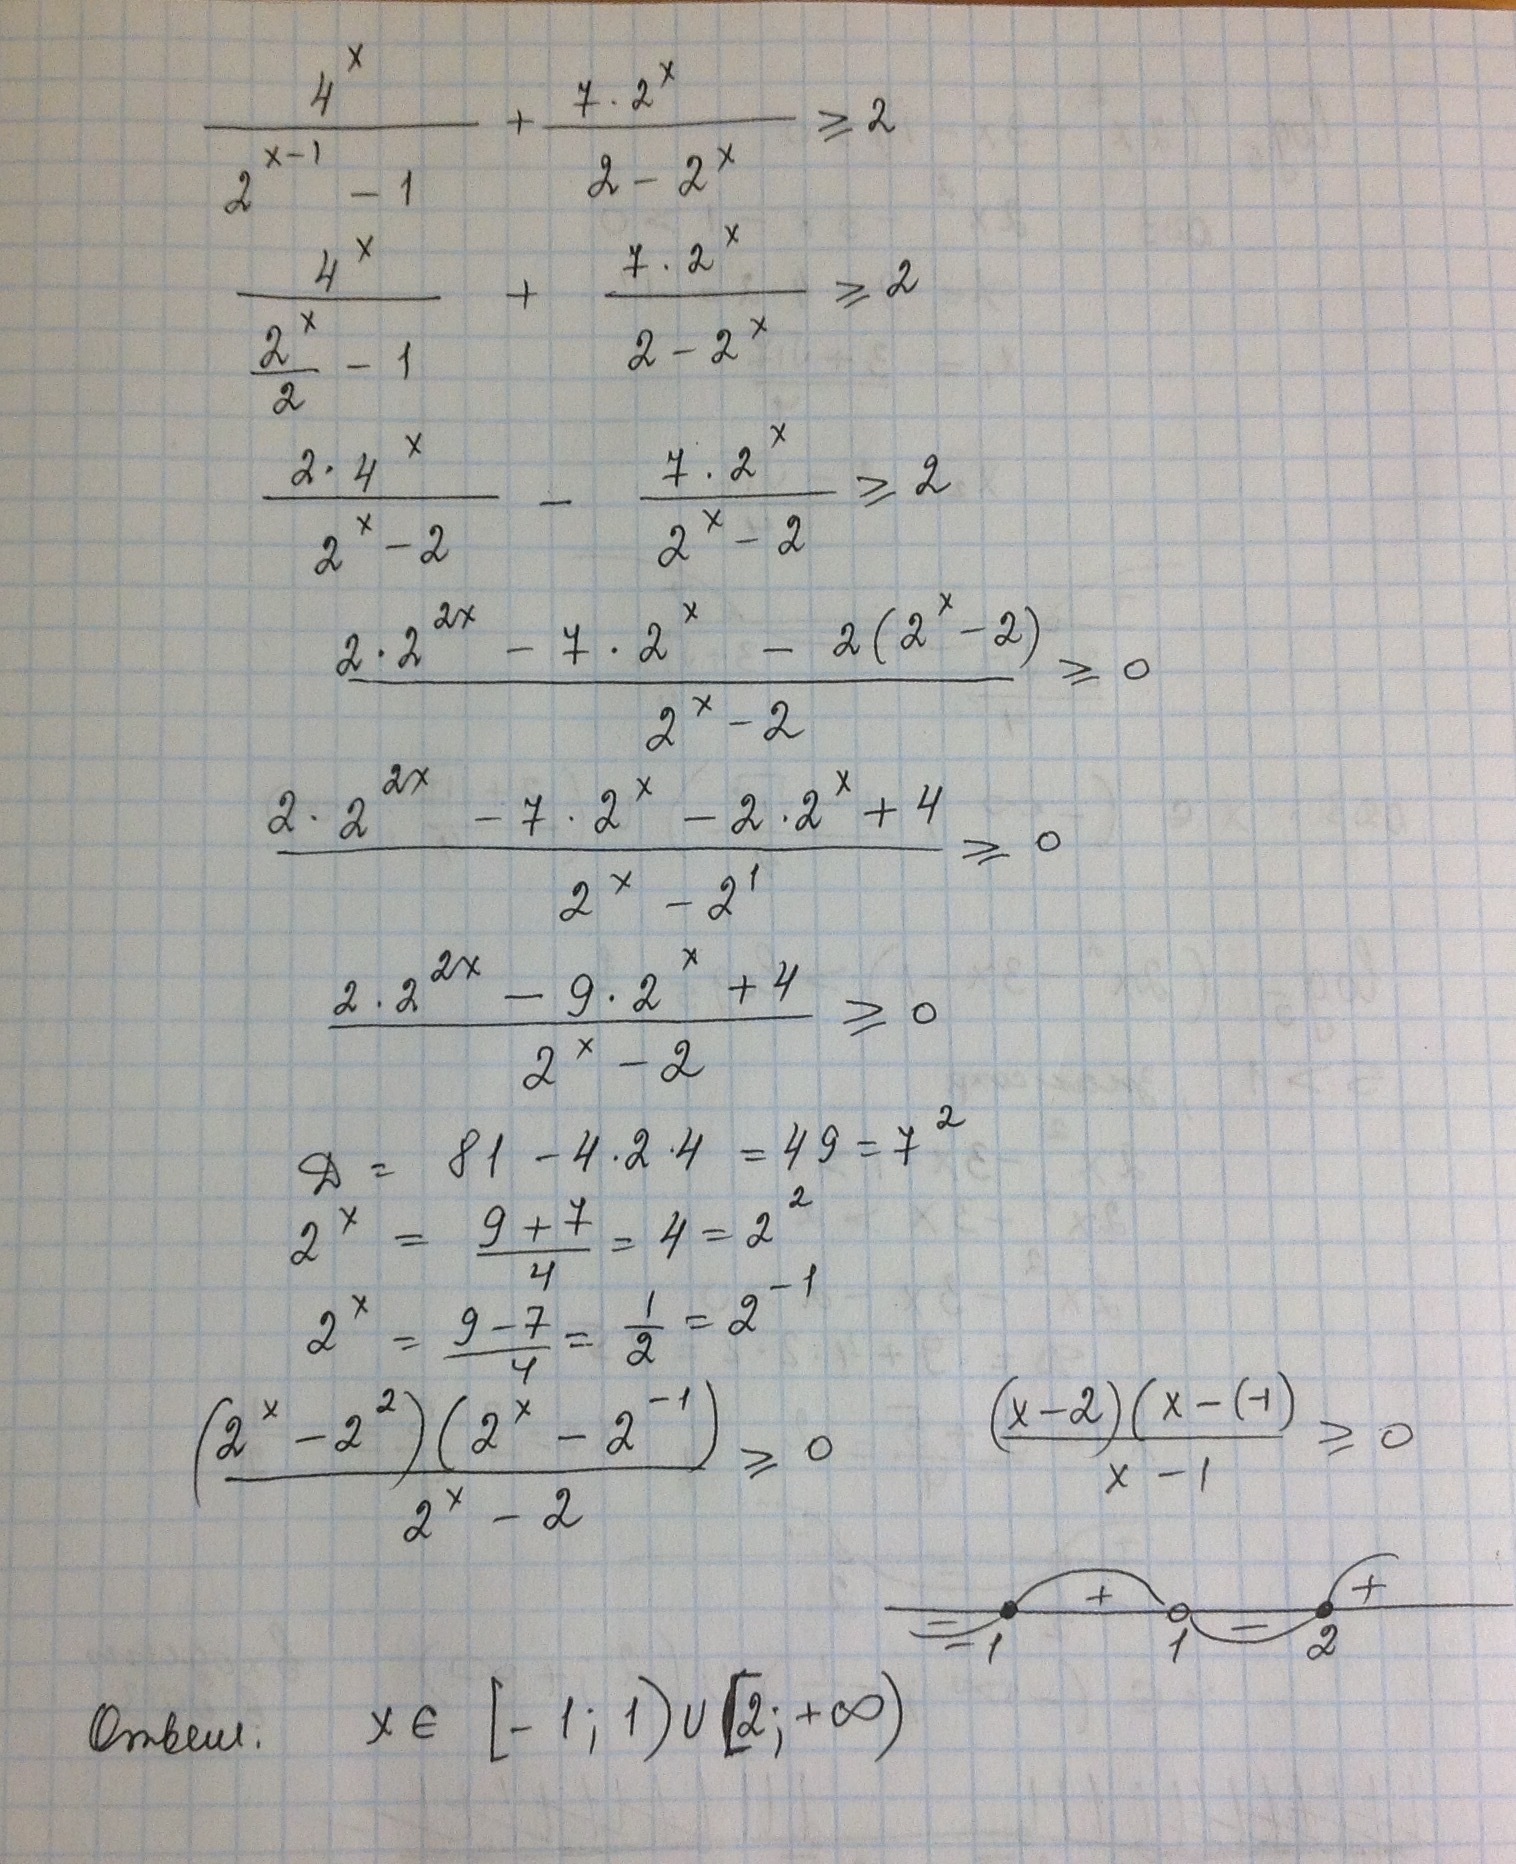 4^x / (2^(x-1) - 1) + 7 · 2^x / (2 - 2^x) ≥ 2
4^x / (2^x/2 - 1) + 7 · 2^x / (2 - 2^x) ≥ 2
2 · 4^x / (2^x - 2) - 7 · 2^x / (2^x - 2) ≥ 2
(2 · 2^(2x) - 7 · 2^x - 2(2^x - 2)) / (2^x - 2) ≥ 0
(2 · 2^(2x) - 7 · 2^x - 2 · 2^x + 4) / (2^x - 2^1) ≥ 0
(2 · 2^(2x) - 9 · 2^x + 4) / (2^x - 2) ≥ 0
D = 81 - 4 · 2 · 4 = 49 = 7^2
2^x = (9 + 7)/4 = 4 = 2^2
2^x = (9 - 7)/4 = 1/2 = 2^(-1)
(2^x - 2^2)(2^x - 2^(-1)) / (2^x - 2) ≥ 0
(x - 2)(x - (-1) / (x - 1) ≥ 0
- + - +
-1 1 2
Ответ. x ∈ [-1; 1) ∪ [2; +∞)